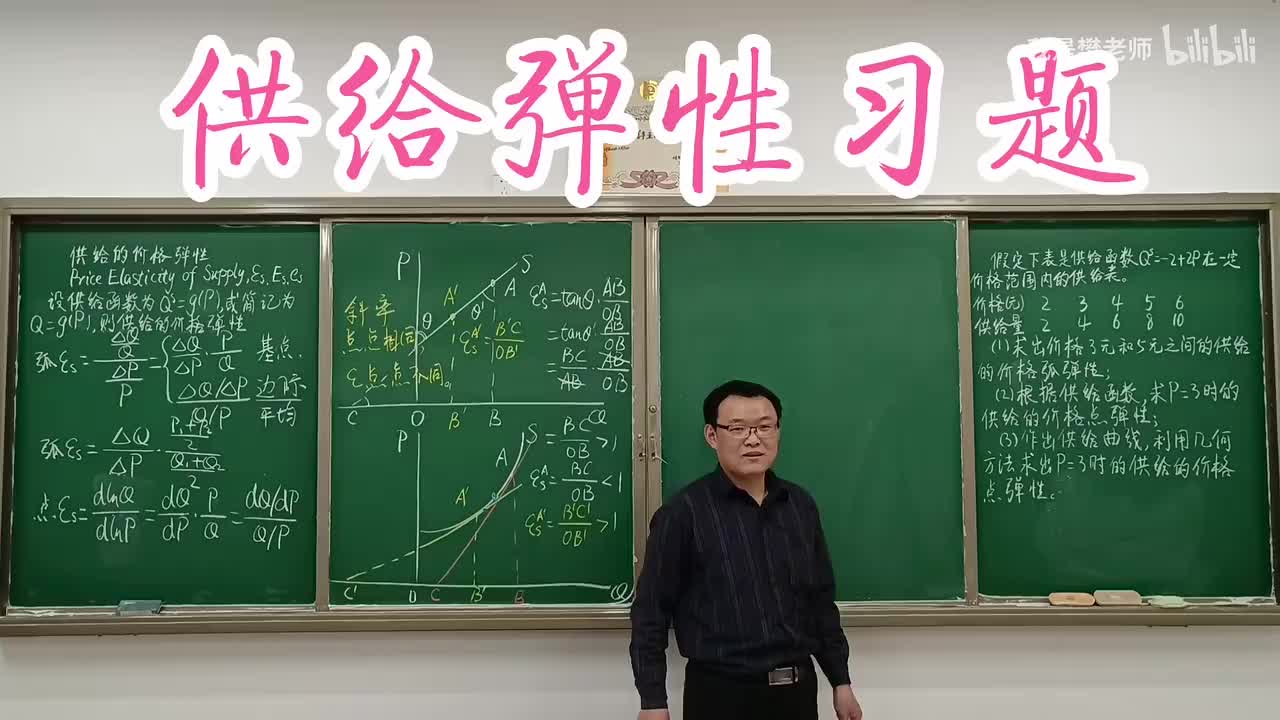 供给弹性习题
樊老师 bilibili
供给的价格弹性
Price Elasticity of Supply, εs, Es, es
设供给函数为 Qˢ=g(P), 或简记为
Q=g(P), 则供给的价格弹性
弧εs = (ΔQ/Q)/(ΔP/P) = { ΔQ/ΔP · P/Q 基点.
(ΔQ/ΔP)/(Q/P) 边际 平均
弧εs = ΔQ/ΔP · ((P₁+P₂)/2)/((Q₁+Q₂)/2)
点εs = dlnQ/dlnP = dQ/dP · P/Q = (dQ/dP)/(Q/P)
P S
A' A
θ θ'
斜率
点点相同
ε点点不同。
εs^A' = B'C/OB'
C O B' B Q
εs^A = tanθ · AB/OB
= tanθ' · AB/OB
= BC/AB · AB/OB
= BC/OB > 1
P S
A
A'
C' O C B' B Q
εs^A = BC/OB < 1
εs^A' = B'C'/OB' > 1
假定下表是供给函数 Qˢ=-2+2P 在一定
价格范围内的供给表。
价格(元) 2 3 4 5 6
供给量 2 4 6 8 10
(1) 求出价格3元和5元之间的供给
的价格弧弹性;
(2) 根据供给函数, 求P=3时的
供给的价格点弹性;
(3) 作出供给曲线, 利用几何
方法求出P=3时的供给的价格
点弹性。